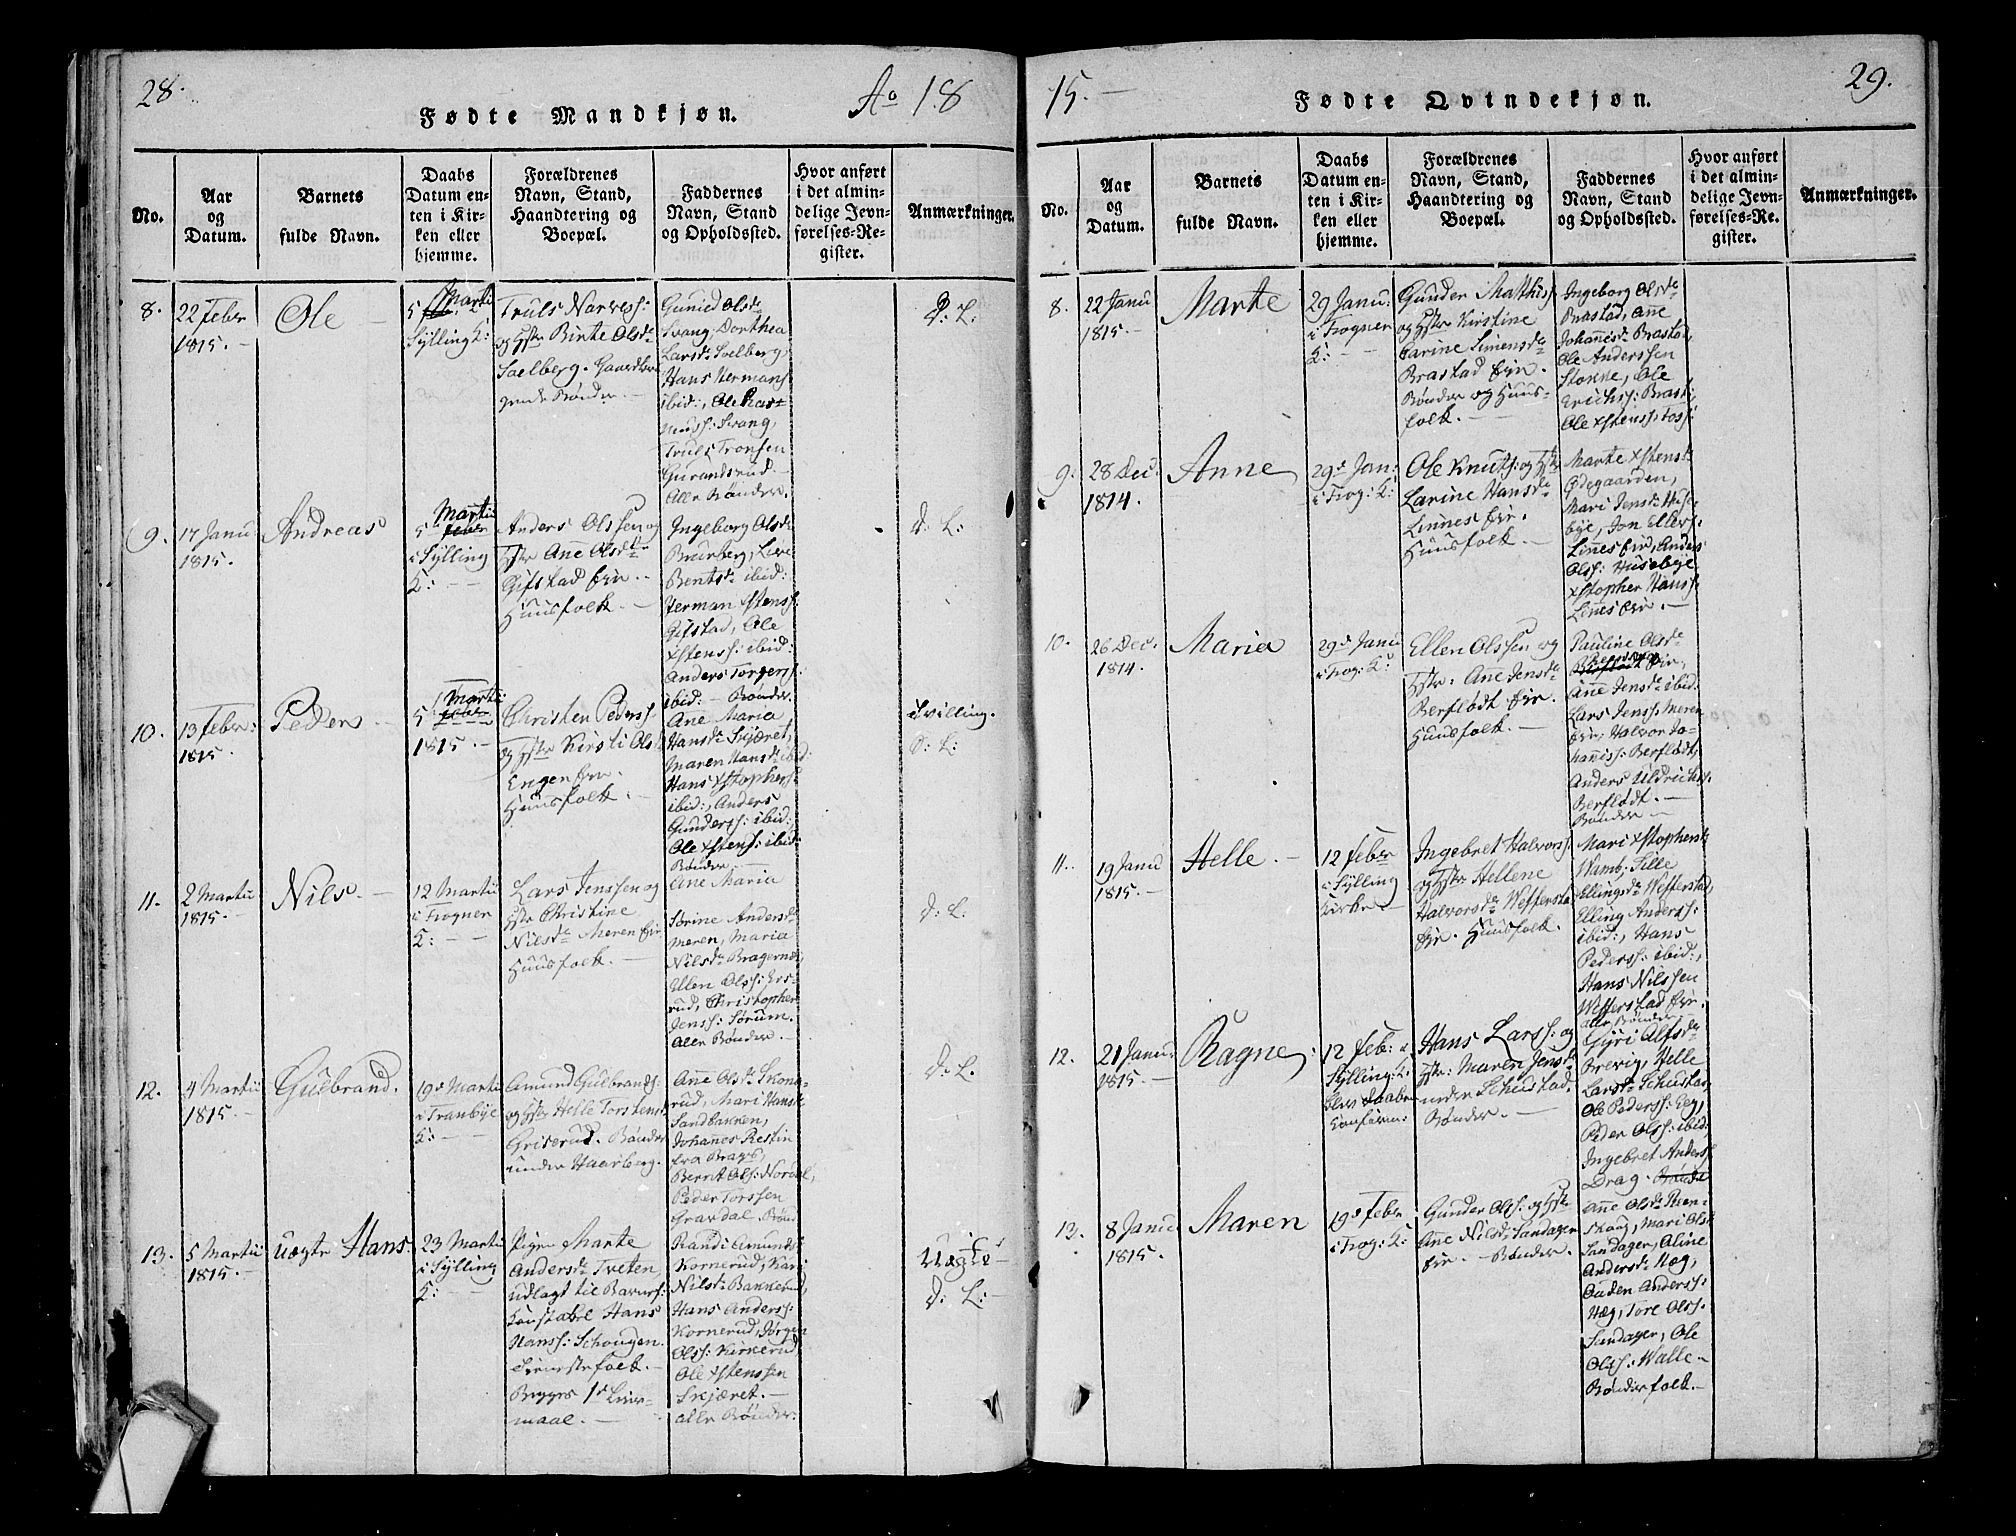 28.
Ao 18
Fødte Mandkjøn.
No.
Aar
og
Datum.
Barnets
fulde Navn.
Daabs
Datum en-
ten i Kir-
ken eller
hjemme.
Forældrenes
Navn, Stand,
Haandtering og
Boepæl.
Faddernes
Navn, Stand
og Opholdssted.
Hvor anført
i det almin-
delige Jevn-
førelses-Re-
gister.
Anmærkninger.
8.
22 Febr
1815.
Ole
5 Martii
Sylling K:
Truls Narvess:
og Hstr Birte Olsdr
Solberg. Gaardbru-
gende Bønder.
Gunild Olsdr
Svang, Dorthea
Larsdr Solberg,
Hans Hermans:
ibid:, Ole Ras-
muss: Svang,
Truls Tronsen
Gurandsrud.
Alle Bønder.
D: L:
9.
17 Janu
1815.
Andreas
5 Martii
i Sylling
K:
Anders Olssen og
Hstr Ane Olsdr
Gifstad Eie.
Huusfolk.
Ingeborg Olsdr
Buurberg, Live
Bentsdr ibid:
Herman Xstenss:
Gifstad, Ole
Xstenss: ibid:
Anders Torgerss:
ibid: Bønder.
D: L:
10.
13 Febr:
1815.
Peder
5 Martii
1815.
Christen Pederss:
og Hstr Kirsti Olsdr
Engen Eie.
Huusfolk.
Ane Maria
Hansdr Skjæret,
Maren Hansdr ibid:
Hans Xstophers:
ibid:, Anders
Gunderss: ibid:
Ole Xstens: ibid:
Bønder
Tvilling.
D: L:
11.
2 Martii
1815.
Nils
12 Martii
i Frogner
K:
Lars Jenssen og
Hstr Christine
Nilsdr Meren Eie
Huusfolk.
Ane Maria
Sørine Andersdr
Meren, Maria
Nilsdr Bragernæs,
Ellen Olss: Ers-
rud, Christopher
Jenss: Sørum.
Alle Bønder.
D: L:
12.
4 Martii
1815.
Gulbrand.
19de Martii
i Tranbye
K:
Amund Gulbrands:
og Hstr Helle Torstensdr
Griserud. Bønder
under Haarberg.
Anne Olsdr Skong-
rud, Mari Hansdr
Sandbakken,
Johanes Restin
fra Brags,
Bernt Ols: Nordal,
Peder Torssen
Gravdal. Bønder
D: L.
13.
5 Martii
1815.
uægte Hans.
23 Martii
i Sylling
K:
Pigen Marte
Andersdr Tveten,
udlagt til Barnef:
Constabel Hans
Hanss: Schougen.
Tienestefolk.
Begges 1ste Leier-
maal.
Randi Amundsdr
Kornerud, Kari
Nilsdr Bakkerud,
Hans Anderss:
Kornerud, Jørgen
Olss: Kirkerud
Ole Xstenssen
Skjæret.
alle Bønder:
Uægte
D: L:
15.
Fødte Qvindekjøn.
29.
No.
Aar
og
Datum.
Barnets
fulde Navn.
Daabs
Datum en-
ten i Kir-
ken eller
hjemme.
Forældrenes
Navn, Stand,
Haandtering og
Boepæl.
Faddernes
Navn, Stand
og Opholdssted.
Hvor anført
i det almin-
delige Jevn-
førelses-Re-
gister.
Anmærkninger.
8.
22 Janu
1815.
Marte
29 Janu:
i Frogner
K:
Gunder Matthiss:
og Hstr Kirstine
Carine Simensdr
Brastad Eie.
Bønder og Huus-
folk.
Ingeborg Olsdr
Brastad, Ane
Johannisdr Brastad,
Ole Anderssen
Stokke, Ole
Erichss: Brast:
Ole Xstenss: Foss:
9.
28 Dec:
1814.
Anne
29de Jan:
i Frog: K:
Ole Knuts: og Hstr
Larine Hansdr
Linnes Eie.
Huusfolk.
Marte Xstensdr
Ødegaarden,
Mari Jensdr Huse-
bye, Jon Ellefs:
Lines Eie, Anders
Olss: Husebye
Xstopher Hanss:
Lines Eie.
10.
26 Dec.
1814.
Maria
29de Janu
i Frog: K:
Ellen Olssen og
Hstr: Ane Jensdr
Berflødt Eie.
Huusfolk.
Pauline Olsdr
Eie,
Ane Jensdr ibid:
Lars Jenss: Meren
Eie, Halvor Jo-
haniss: Berflødt,
Anders Uldrichs:
Berflødt.
Bønder
11.
19 Janu
1815.
Helle.
12 Febr
i Sylling
Kirke
Ingebret Halvorss:
og Hstr Hellene
Halvorsdr Wefferstad
Eie. Huusfolk.
Mari Xstophersdr
Wamb, Sille
Ellingsdr Wefferstad,
Elling Anderss:
ibid:, Hans
Pederss: ibid:,
Hans Nilssen
Wefferstad Eie.
alle Bønder
12.
21 Janu:
1815.
Ragne
12 Feb: i
Sylling: K:
blev Daaben
Confirm:
Hans Larss: og
Hstr: Maren Jensdr
under Schustad.
Bønder.
Gyri Alfsdr
Brevig, Helle
Larsdr Schustad
Ole Pederss: Eeg,
Peder Olss: ibid:
Ingebret Anderss:
Drag. Bønder
13.
8 Janu
1815.
Maren
19de Febr
i Frog: K:
Gunder Olss: og Hstr
Ane Nilsdr Sandager
Eie. Bønder.
Ane Olsdr Ren-
skoug, Mari Olsdr
Sandager, Aline
Andersdr Hæg,
Auden Anderss:
Hæg, Tore Olss:
Sandager, Ole
Olss: Walle
Bønderfolk.